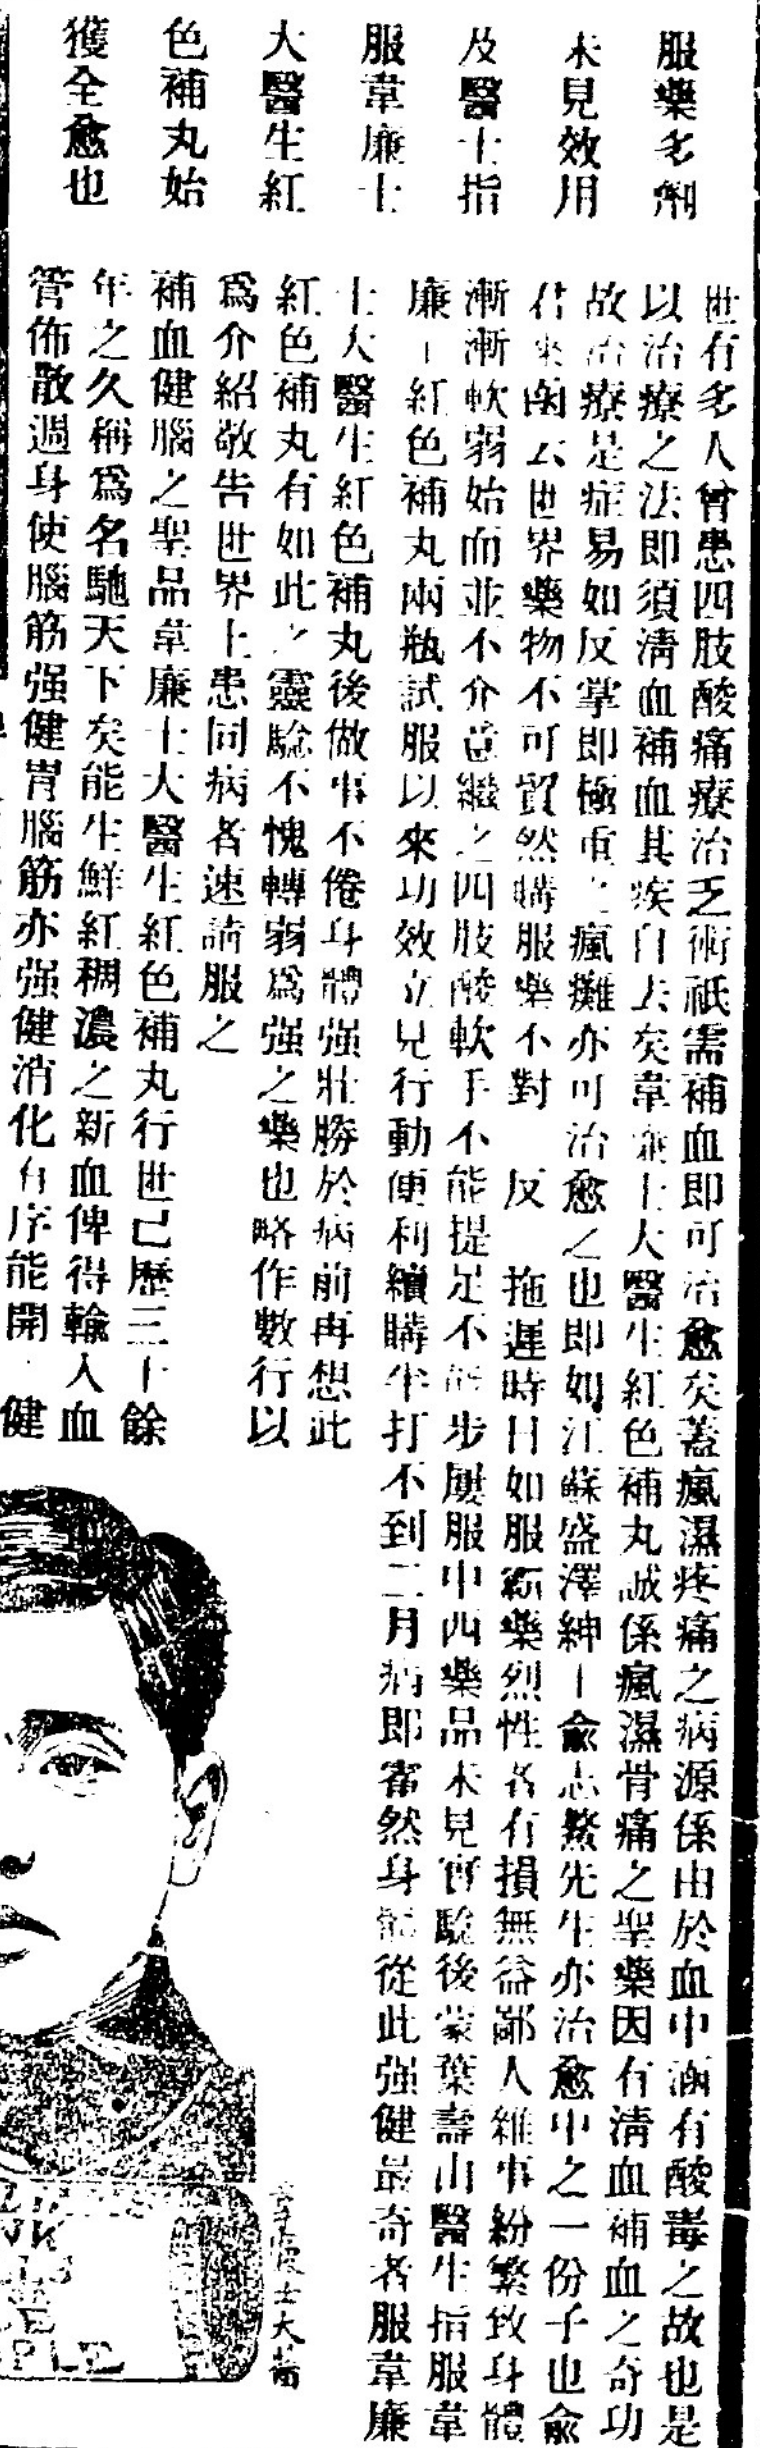 服藥多劑
未見效用
及醫士指
服韋廉士
大醫生紅
色補丸始
獲全愈也
世有多人曾患四肢酸痛療治乏術祇需補血即可治愈矣蓋瘋濕疼痛之病源係由於血中涵有酸毒之故也是
以治療之法即須淸血補血其疾自去矣韋廉士大醫生紅色補丸誠係瘋濕骨痛之聖藥因有淸血補血之奇功
故治療是症易如反掌即極重之瘋癱亦可治愈之也即如江蘇盛澤紳士俞志鰲先生亦治愈中之一份子也俞
君來函云世界藥物不可貿然購服藥不對 反 拖遲時日如服 藥烈性者有損無益鄙人雜事紛繁致身體
漸漸軟弱始而並不介意繼之四肢酸軟手不能提足不能步屢服中西藥品未見實驗後蒙葉壽山醫生指服韋
廉士紅色補丸兩瓶試服以來功效立見行動便利續購半打不到二月病即霍然身體從此强健最奇者服韋廉
士大醫生紅色補丸後做事不倦身體强壯勝於病前再想此
紅色補丸有如此之靈驗不愧轉弱爲强之藥也略作數行以
爲介紹敬告世界上患同病者速請服之
補血健腦之聖品韋廉士大醫生紅色補丸行世已歷三十餘
年之久稱爲名馳天下矣能生鮮紅稠濃之新血俾得輸入血
管佈散過身使腦筋强健胃腦筋亦强健消化有序能開 健